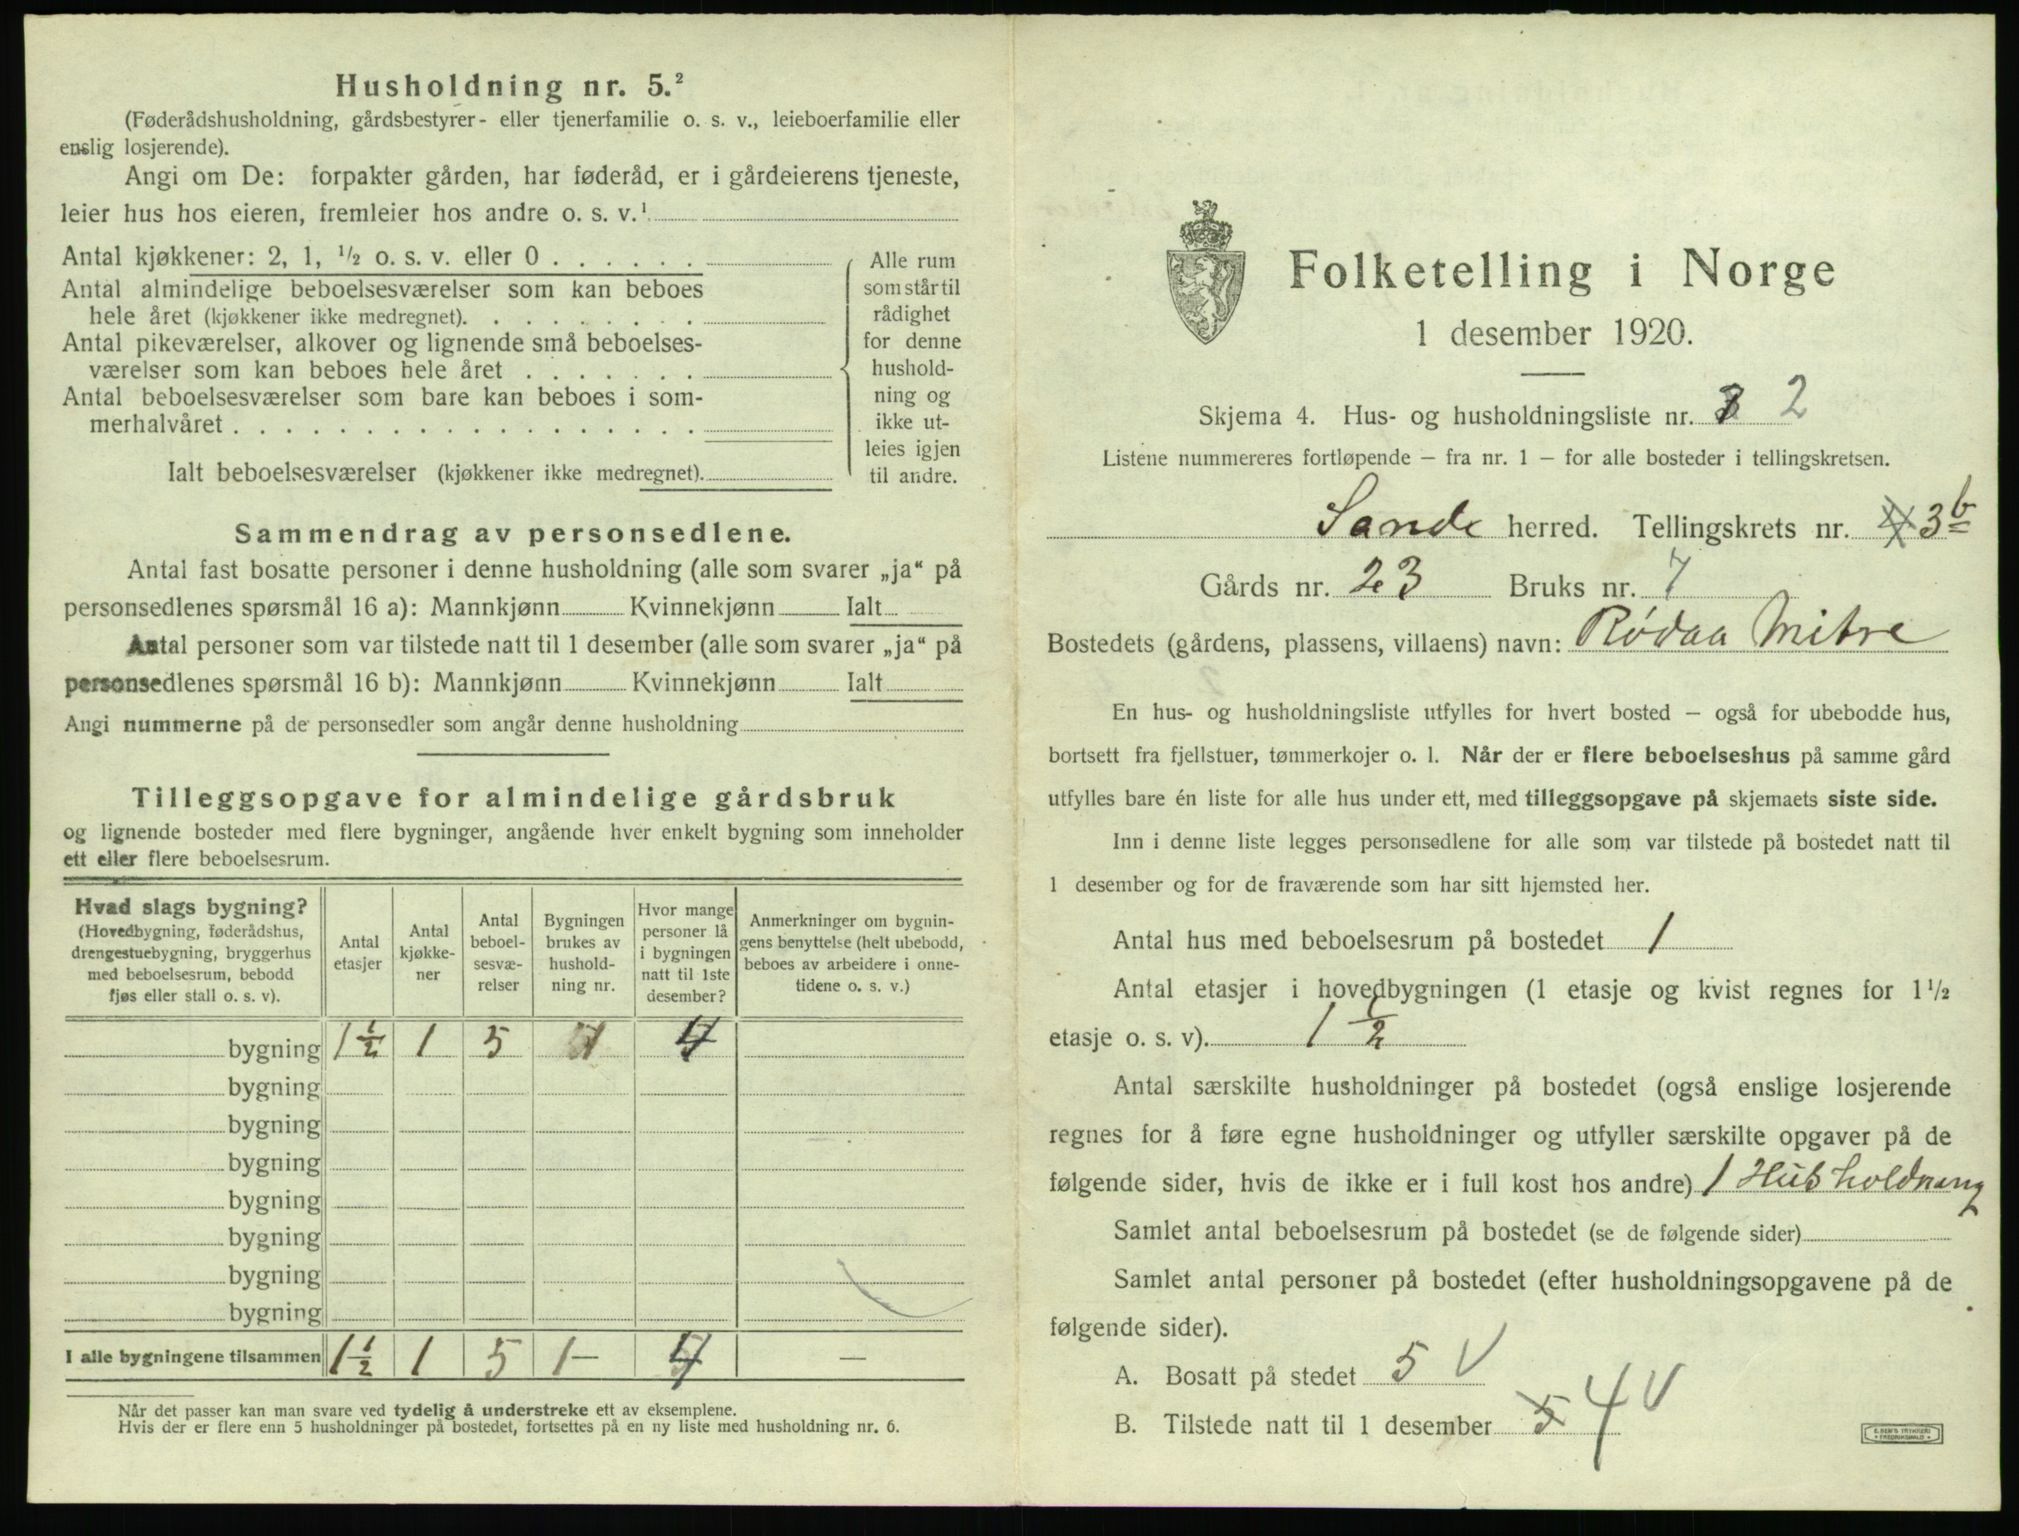 Husholdning nr. 5.²
(Føderådshusholdning, gårdsbestyrer- eller tjenerfamilie o. s. v., leieboerfamilie eller
enslig losjerende).
Angi om De: forpakter gården, har føderåd, er i gårdeierens tjeneste,
leier hus hos eieren, fremleier hos andre o. s. v.¹
Antal kjøkkener: 2, 1, ½ o. s. v. eller 0
Antal almindelige beboelsesværelser som kan beboes
hele året (kjøkkener ikke medregnet).
Antal pikeværelser, alkover og lignende små beboelses-
værelser som kan beboes hele året
Antal beboelsesværelser som bare kan beboes i som-
merhalvåret
Ialt beboelsesværelser (kjøkkener ikke medregnet).
Alle rum
som står til
rådighet
for denne
hushold-
ning og
ikke ut-
leies igjen
til andre.
Sammendrag av personsedlene.
Antal fast bosatte personer i denne husholdning (alle som svarer „ja“ på
personsedlenes spørsmål 16 a): Mannkjønn Kvinnekjønn Ialt
Antal personer som var tilstede natt til 1 desember (alle som svarer „ja“ på
personsedlenes spørsmål 16 b): Mannkjønn Kvinnekjønn Ialt
Angi nummerne på de personsedler som angår denne husholdning
Tilleggsopgave for almindelige gårdsbruk
og lignende bosteder med flere bygninger, angående hver enkelt bygning som inneholder
ett eller flere beboelsesrum.
Hvad slags bygning?
(Hovedbygning, føderådshus,
drengestuebygning, bryggerhus
med beboelsesrum, bebodd
fjøs eller stall o. s. v).
Antal
etasjer
Antal
kjøkke-
ner
Antal
beboel-
sesvæ-
relser
Bygningen
brukes av
hushold-
ning nr.
Hvor mange
personer lå
i bygningen
natt til 1ste
desember?
Anmerkninger om bygnin-
gens benyttelse (helt ubebodd,
beboes av arbeidere i onne-
tidene o. s. v.)
bygning 1½ 1 5 1 4
bygning
bygning
bygning
bygning
bygning
bygning
bygning
I alle bygningene tilsammen 1½ 1 5 1 — 4 —
Når det passer kan man svare ved tydelig å understreke ett av eksemplene.
Hvis der er flere enn 5 husholdninger på bostedet, fortsettes på en ny liste med husholdning nr. 6.
Folketelling i Norge
1 desember 1920.
Skjema 4. Hus- og husholdningsliste nr. 2
Listene nummereres fortløpende – fra nr. 1 – for alle bosteder i tellingskretsen.
Sande herred. Tellingskrets nr. 3b
Gårds nr. 23 Bruks nr. 7
Bostedets (gårdens, plassens, villaens) navn: Rødaa Mitre
En hus- og husholdningsliste utfylles for hvert bosted – også for ubebodde hus,
bortsett fra fjellstuer, tømmerkojer o. l. Når der er flere beboelseshus på samme gård
utfylles bare én liste for alle hus under ett, med tilleggsopgave på skjemaets siste side.
Inn i denne liste legges personsedlene for alle som var tilstede på bostedet natt til
1 desember og for de fraværende som har sitt hjemsted her.
Antal hus med beboelsesrum på bostedet 1
Antal etasjer i hovedbygningen (1 etasje og kvist regnes for 1½
etasje o. s. v). 1½
Antal særskilte husholdninger på bostedet (også enslige losjerende
regnes for å føre egne husholdninger og utfyller særskilte opgaver på de
følgende sider, hvis de ikke er i full kost hos andre) 1 Husholdning
Samlet antal beboelsesrum på bostedet (se de følgende sider)
Samlet antal personer på bostedet (efter husholdningsopgavene på de
følgende sider).
A. Bosatt på stedet 5 V
B. Tilstede natt til 1 desember 5 4 V